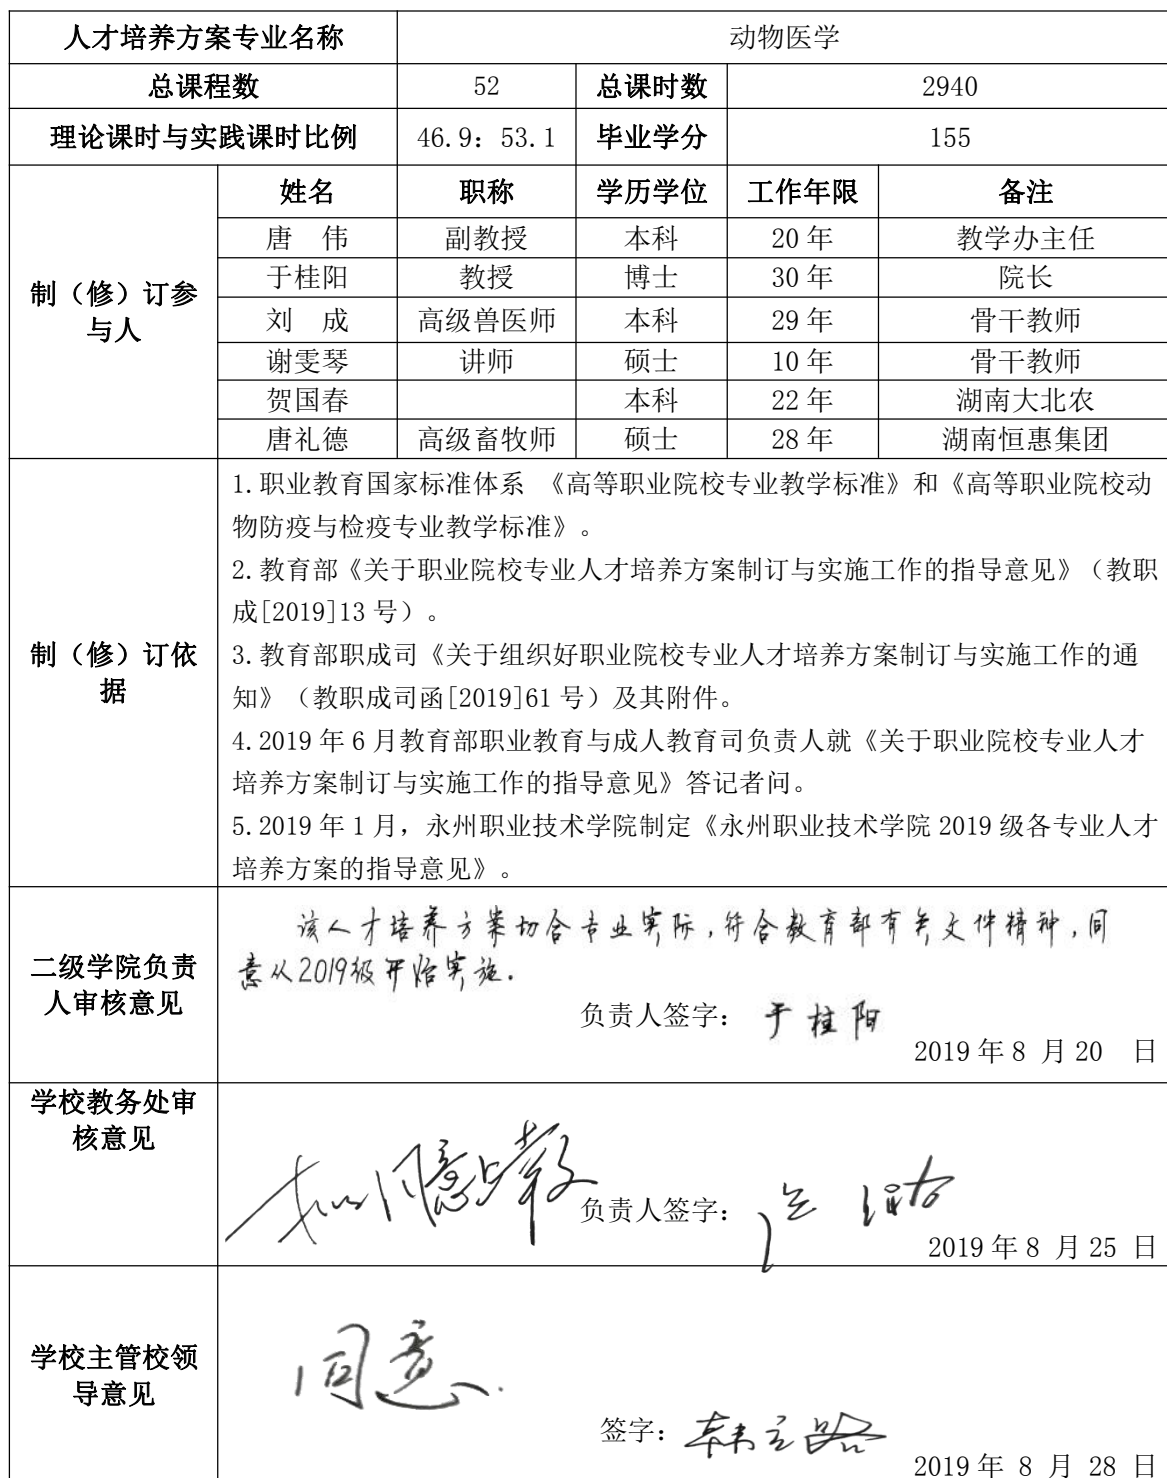 人才培养方案专业名称 动物医学
总课程数 52 总课时数 2940
理论课时与实践课时比例 46.9：53.1 毕业学分 155
制（修）订参与人 姓名 职称 学历学位 工作年限 备注
唐 伟 副教授 本科 20年 教学办主任
于桂阳 教授 博士 30年 院长
刘 成 高级兽医师 本科 29年 骨干教师
谢雯琴 讲师 硕士 10年 骨干教师
贺国春 本科 22年 湖南大北农
唐礼德 高级畜牧师 硕士 28年 湖南恒惠集团
制（修）订依据
1.职业教育国家标准体系 《高等职业院校专业教学标准》和《高等职业院校动
物防疫与检疫专业教学标准》。
2.教育部《关于职业院校专业人才培养方案制订与实施工作的指导意见》（教职
成[2019]13号）。
3.教育部职成司《关于组织好职业院校专业人才培养方案制订与实施工作的通
知》（教职成司函[2019]61号）及其附件。
4.2019年6月教育部职业教育与成人教育司负责人就《关于职业院校专业人才
培养方案制订与实施工作的指导意见》答记者问。
5.2019年1月，永州职业技术学院制定《永州职业技术学院2019级各专业人才
培养方案的指导意见》。
二级学院负责人审核意见
该人才培养方案切合专业实际，符合教育部有关文件精神，同
意从2019级开始实施.
负责人签字： 于桂阳
2019年8 月20 日
学校教务处审核意见
负责人签字：
2019年8 月25 日
学校主管校领导意见
同意.
签字：
2019年 8 月 28 日